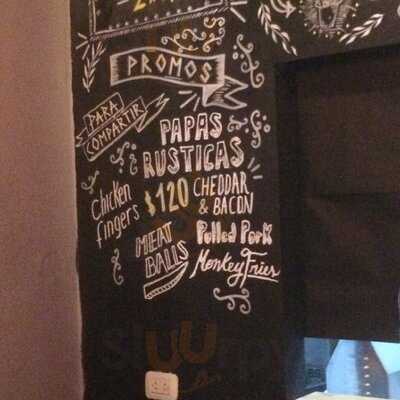 PROMOS
PARA
COMPARTIR
PAPAS
RUSTICAS
Chicken
fingers
$120
CHEDDAR
& BACON
MEAT
BALLS
Pulled Pork
Monkey Fries